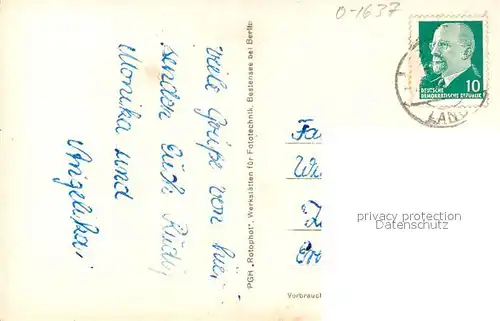 0-1637
DEUTSCHE
DEMOKRATISCHE REPUBLIK
10
LAND
viele Grüße von hier
senden Euch Rudi,
Monika und
Angelika
PGH „Rotophot", Werkstätten für Fototechnik, Bestensee bei Berlin
Fa
privacy protection
Datenschutz
Verbrauch